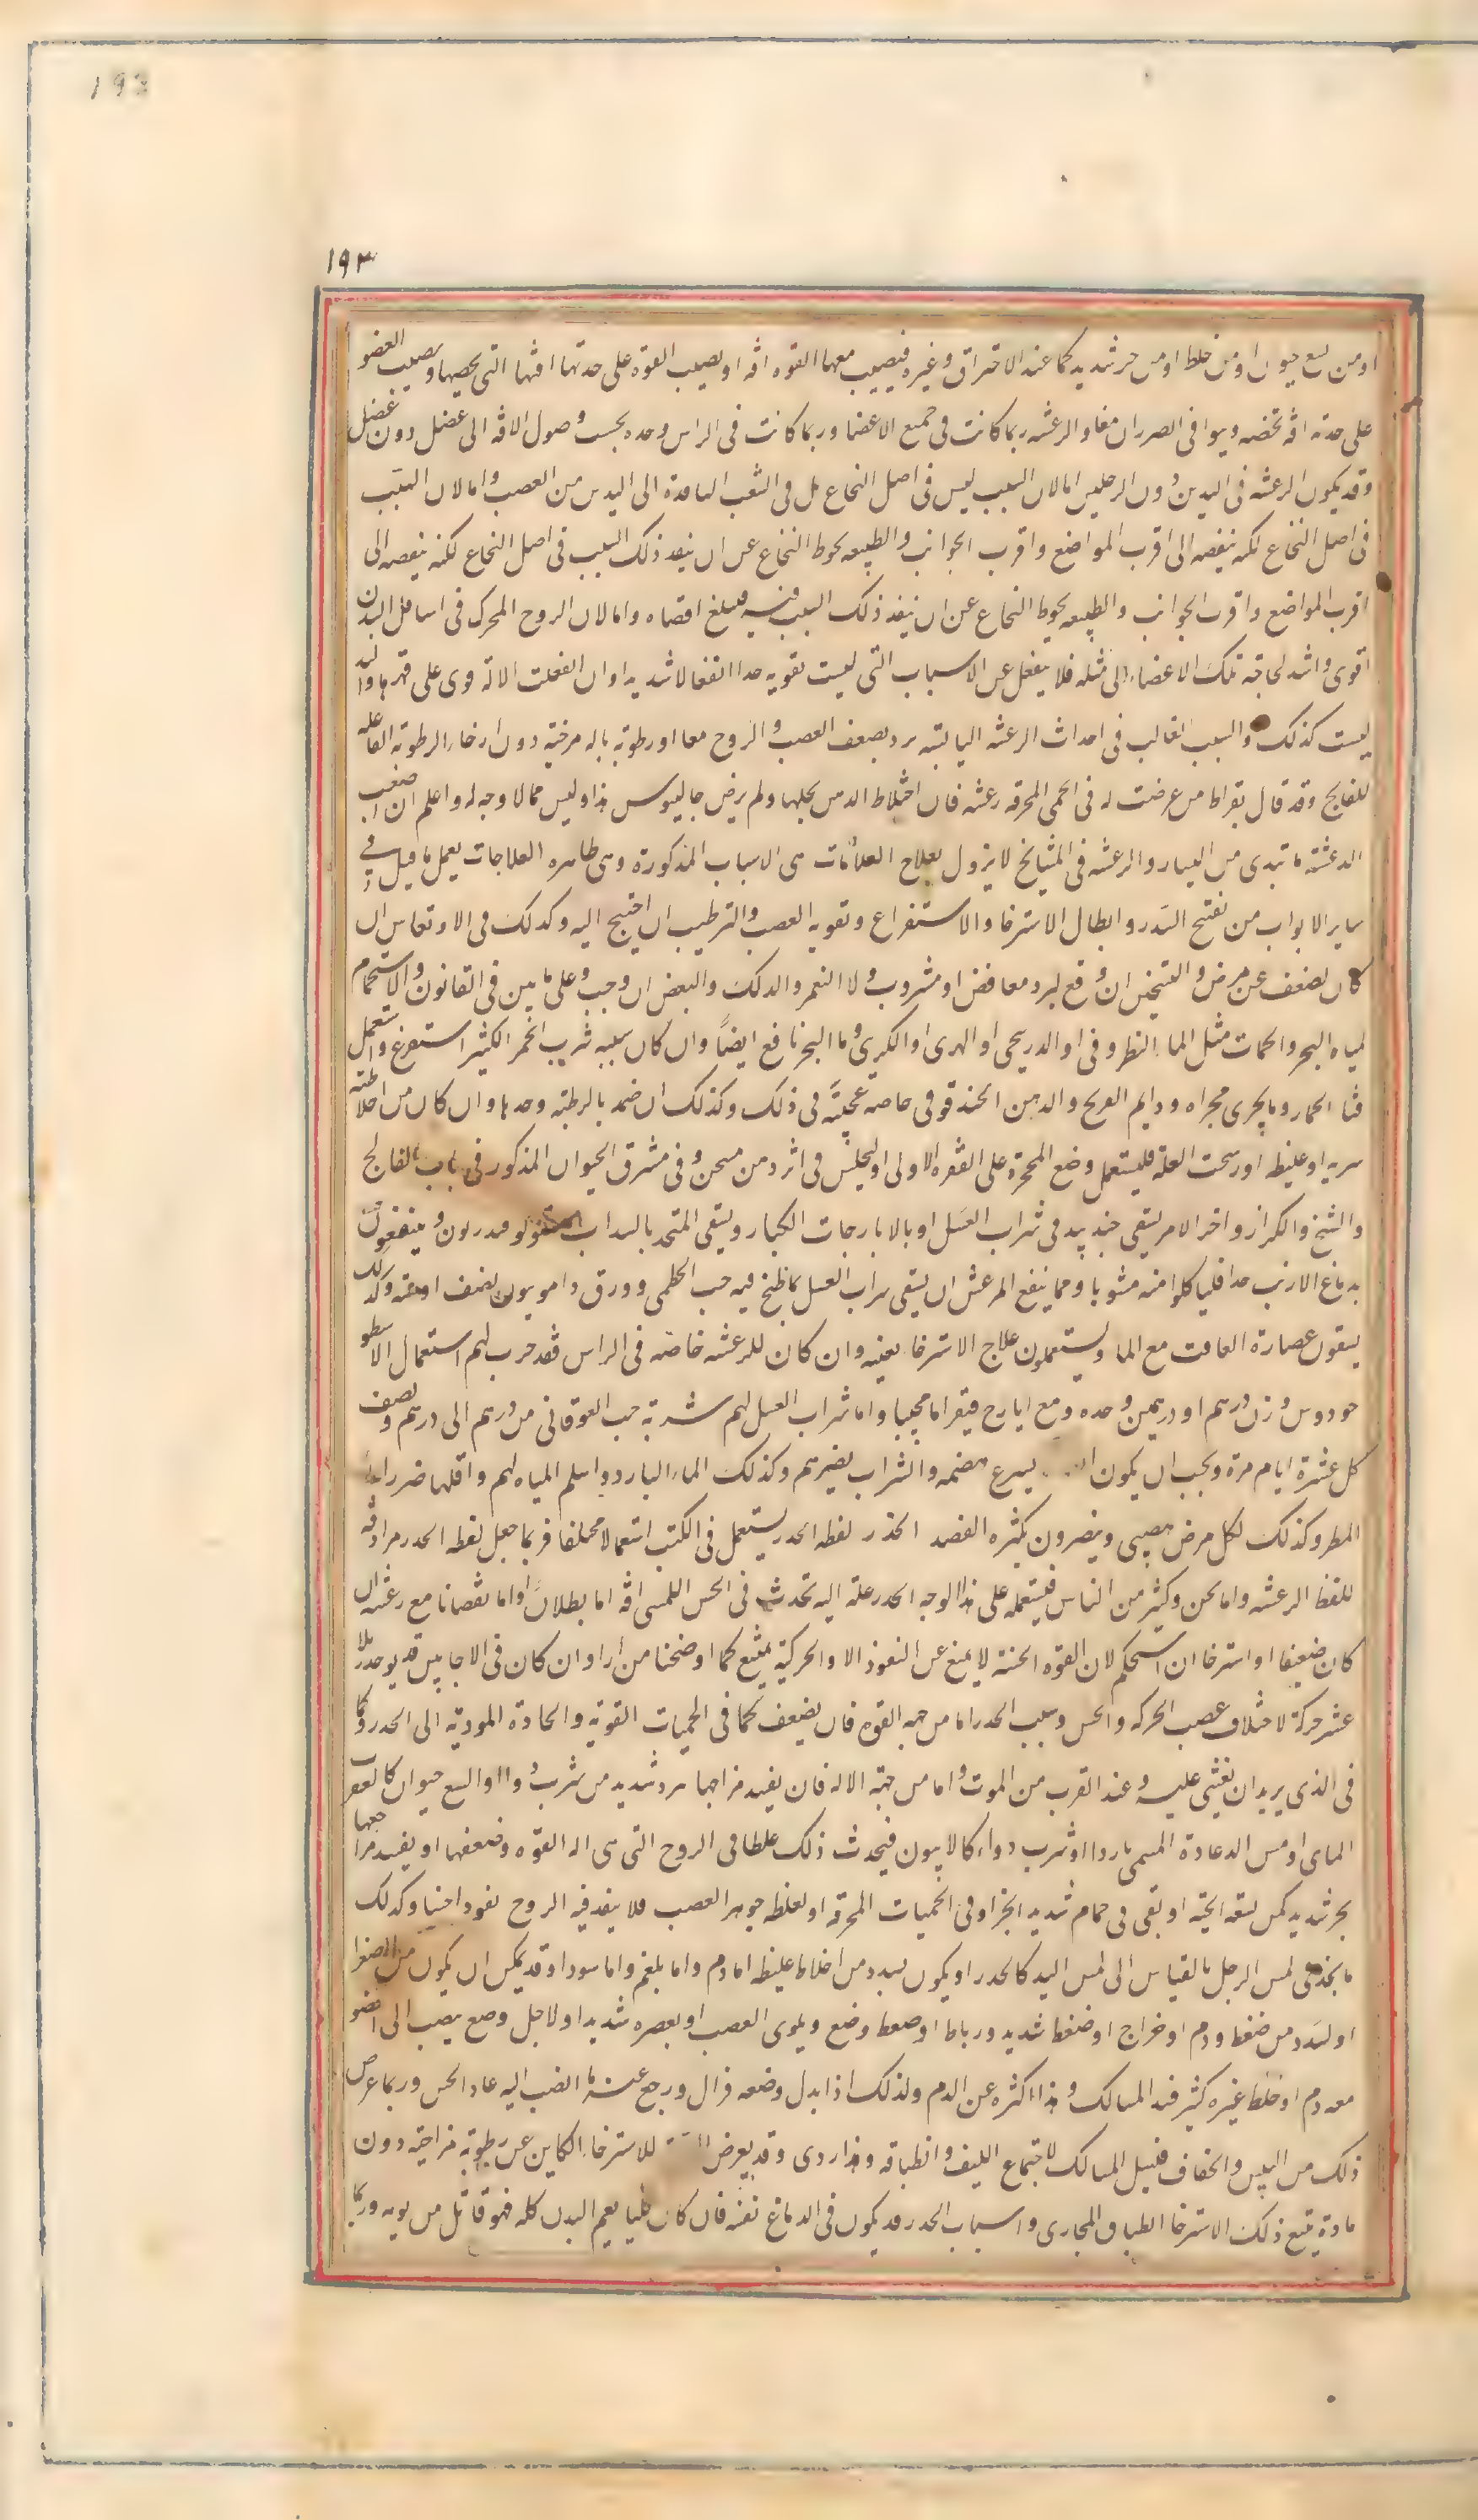 193
١٩٣
او من لسع حيوان او من خلط او من حر شديد كما عند الاحتراق وغيره فيصيب معها القوه افه او يصيب القوة على حدتها افتها التى يخصها ويصيب العضو
على حدته افه تخصه ويوافى الضرران معا والرعشه ربما كانت فى جميع الاعضا وربما كانت فى الراس وحده بحسب وصول الافه الى عضل دون عضل
وقد يكون الرعشه فى اليدين دون الرجلين اما لان السبب ليس فى اصل النخاع بل فى الشعب النافذة الى اليدين من العصب واما لان السبب
فى اصل النخاع لكنه ينفضه الى اقرب المواضع واقرب الجوانب والطبيعه تحوط النخاع عن ان ينفذ ذلك السبب فى اصل النخاع لكنه ينفضه الى
اقرب المواضع واقرب الجوانب والطبيعه يحوط النخاع عن ان ينفذ ذلك السبب فيه فيبلغ اقصاه واما لان الروح المحرك فى اسافل البدن
اقوى واشد لحاجة تلك الاعضاء الى مثله فلا ينفعل عن الاسباب التى ليست بقويه جدا انفعالا شديدا وان انفعلت الالة قوى على قهرها واليد
ليست كذلك والسبب الغالب فى احداث الرعشه اليابسه برد يضعف العصب والروح معا او رطوبة باله مرخية دون ارخاء الرطوبه الفاعله
للفالج وقد قال بقراط من عرضت له فى الحمى المحرقه رعشه فان اختلاط الذهن يحلها ولم يرض جالينوس هذا وليس مما لا وجه له واعلم ان اصعب
الرعشة ما تبتدى من اليسار والرعشه فى المشايخ لا يزول بعلاج العلامات هى الاسباب المذكورة وهى ظاهره العلاجات يعمل ما قيل فى
ساير الابواب من تفتيح السدد وابطال الاسترخا والاستفراغ وتقويه العصب والترطيب ان احتيج اليه وكذلك فى الاوتعاس ان
كان لضعف عن مرض والتسخين ان وقع لبرد معافض او مشروب ولا النمر والدلك والنفض ان وجب وعلى ما بين فى القانون والاستحمام
لمياه البحر والحمات مثل الماء النطرونى او الزرنيخى او القفرى او الكبريتى وما البحر نافع ايضا وان كان سببه شرب الخمر الكثير استفرغ واستعمل
قثا الحمار وما يجرى مجراه ودايم الفرج والدهن الحندقوقى خاصه عجيبة فى ذلك وكذلك ان ضمد بالرطبة وحدها وان كان من اخلاط
لزجه او غليظه او رسخت العلة فليستعمل وضع المحجمة على الفقره الاولى او ليجلس فى ابزن دهن مسخن وفى مرق الحيوان المذكور فى باب الفالج
والتشنج والكزاز واخر الامر يسقى جندبيد فى شراب العسل او بالايارجات الكبار ويسقى المتخذ بالسداب وينتفعون
بدماغ الارنب جدا فلياكلوا منه مشويا ومما ينفع المرتعش ان يسقى شراب العسل بما طبخ فيه حب الخطمى وورق وكذلك
يسقون عصارة الغافت مع الماء ويستعملون علاج الاسترخا بعينه وان كان للرعشه خاصه فى الراس فقد جرب لهم استعمال الاسطو
خودوس وزن درهم او درهمين وحده ومع ايارج فيقرا اما محببا واما شراب العسل لهم شربة حب القوقائى من درهم الى درهم ونصف
كل عشرة ايام مرة ويجب ان يكون يسرع هضمه والشراب يضرهم وكذلك الماء البارد واسلم المياه لهم واقلها ضررا ماء
المطر وكذلك لكل مرض عصبى ويضرون بكثره الفصد الخدر لفظه الخدر يستعمل فى الكتب استعمالا مختلفا فربما جعل لفظه الخدر مرادفه
للفظ الرعشه واما نحن وكثير من الناس فيستعمله على هذا الوجه الخدر علة اليه تحدث فى الحس اللمسى افه اما بطلانا واما نقصانا مع رعشه ان
كان ضعيفا او استرخا ان استحكم لان القوه الحسيه لا يمنع عن النفوذ الا والحركية يمتنع كما اوضحنا مرارا وان كان فى الاحايين قد يوجد بلا
عشر حركة لاختلاف عصب الحركه والحس وسبب الخدر اما من جهه القوه فان يضعف كما فى الحميات القوية والحادة المودية الى الخدر وكما
فى الذى يريد ان يغشى عليه وعند القرب من الموت واما من جهة الاله فان يفسد مزاجها برد شديد من شرب دواء او السع حيوان كالعقرب
الماى او مس الرعادة المسمى باردا او شرب دواء كالافيون فيحدث ذلك غلظا فى الروح التى هى اله القوه وضعفها او يفسد مزاجها
بحر شديد كمن لسعه الحية او بقى فى حمام شديد الحر او فى الحميات المحرقة او لغلظه جوهر العصب فلا ينفذ فيه الروح نفوذا حسنا وكذلك
ما نجد فى لمس الرجل بالقياس الى لمس اليد كالخدر او يكون لسدد من اخلاط غليظه اما دم واما بلغم واما سودا وقد يمكن ان يكون من الصفرا
او لسدد من ضغط ورم او خراج او ضغط شديد ورباط او ضغط وضع ويلوى العصب او يعصره شديدا او لاجل وضع يصيب الى العضو
معه دم او خلط غيره كثير فسد المسالك وهذا اكثره عن الدم ولذلك اذا ابدل وضعه فزال ورجع عنه ما انصب اليه عاد الحس وربما عرض
ذلك من اليبس والجفاف فتنسد المسالك لاجتماع الليف وانطباقه وهذا ردى وقد يعرض للاسترخاء الكاين عن رطوبة مزاجية دون
مادة يتبع ذلك الاسترخا انطباق المجارى واسباب الخدر قد يكون فى الدماغ نفسه فان كان كليا يعم البدن كله فهو قاتل من يومه وربما